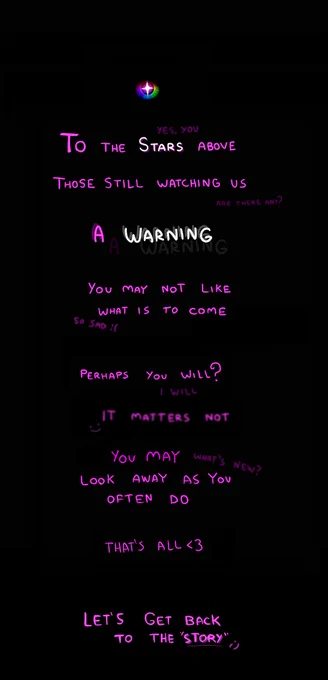 YES, YOU
TO THE STARS ABOVE
THOSE STILL WATCHING US
ARE THERE ANY?
A WARNING
A WARNING
YOU MAY NOT LIKE
WHAT IS TO COME
SO SAD :(
PERHAPS YOU WILL?
I WILL
IT MATTERS NOT
:)
YOU MAY WHAT'S NEW?
LOOK AWAY AS YOU
OFTEN DO
THAT'S ALL <3
LET'S GET BACK
TO THE "STORY" :)